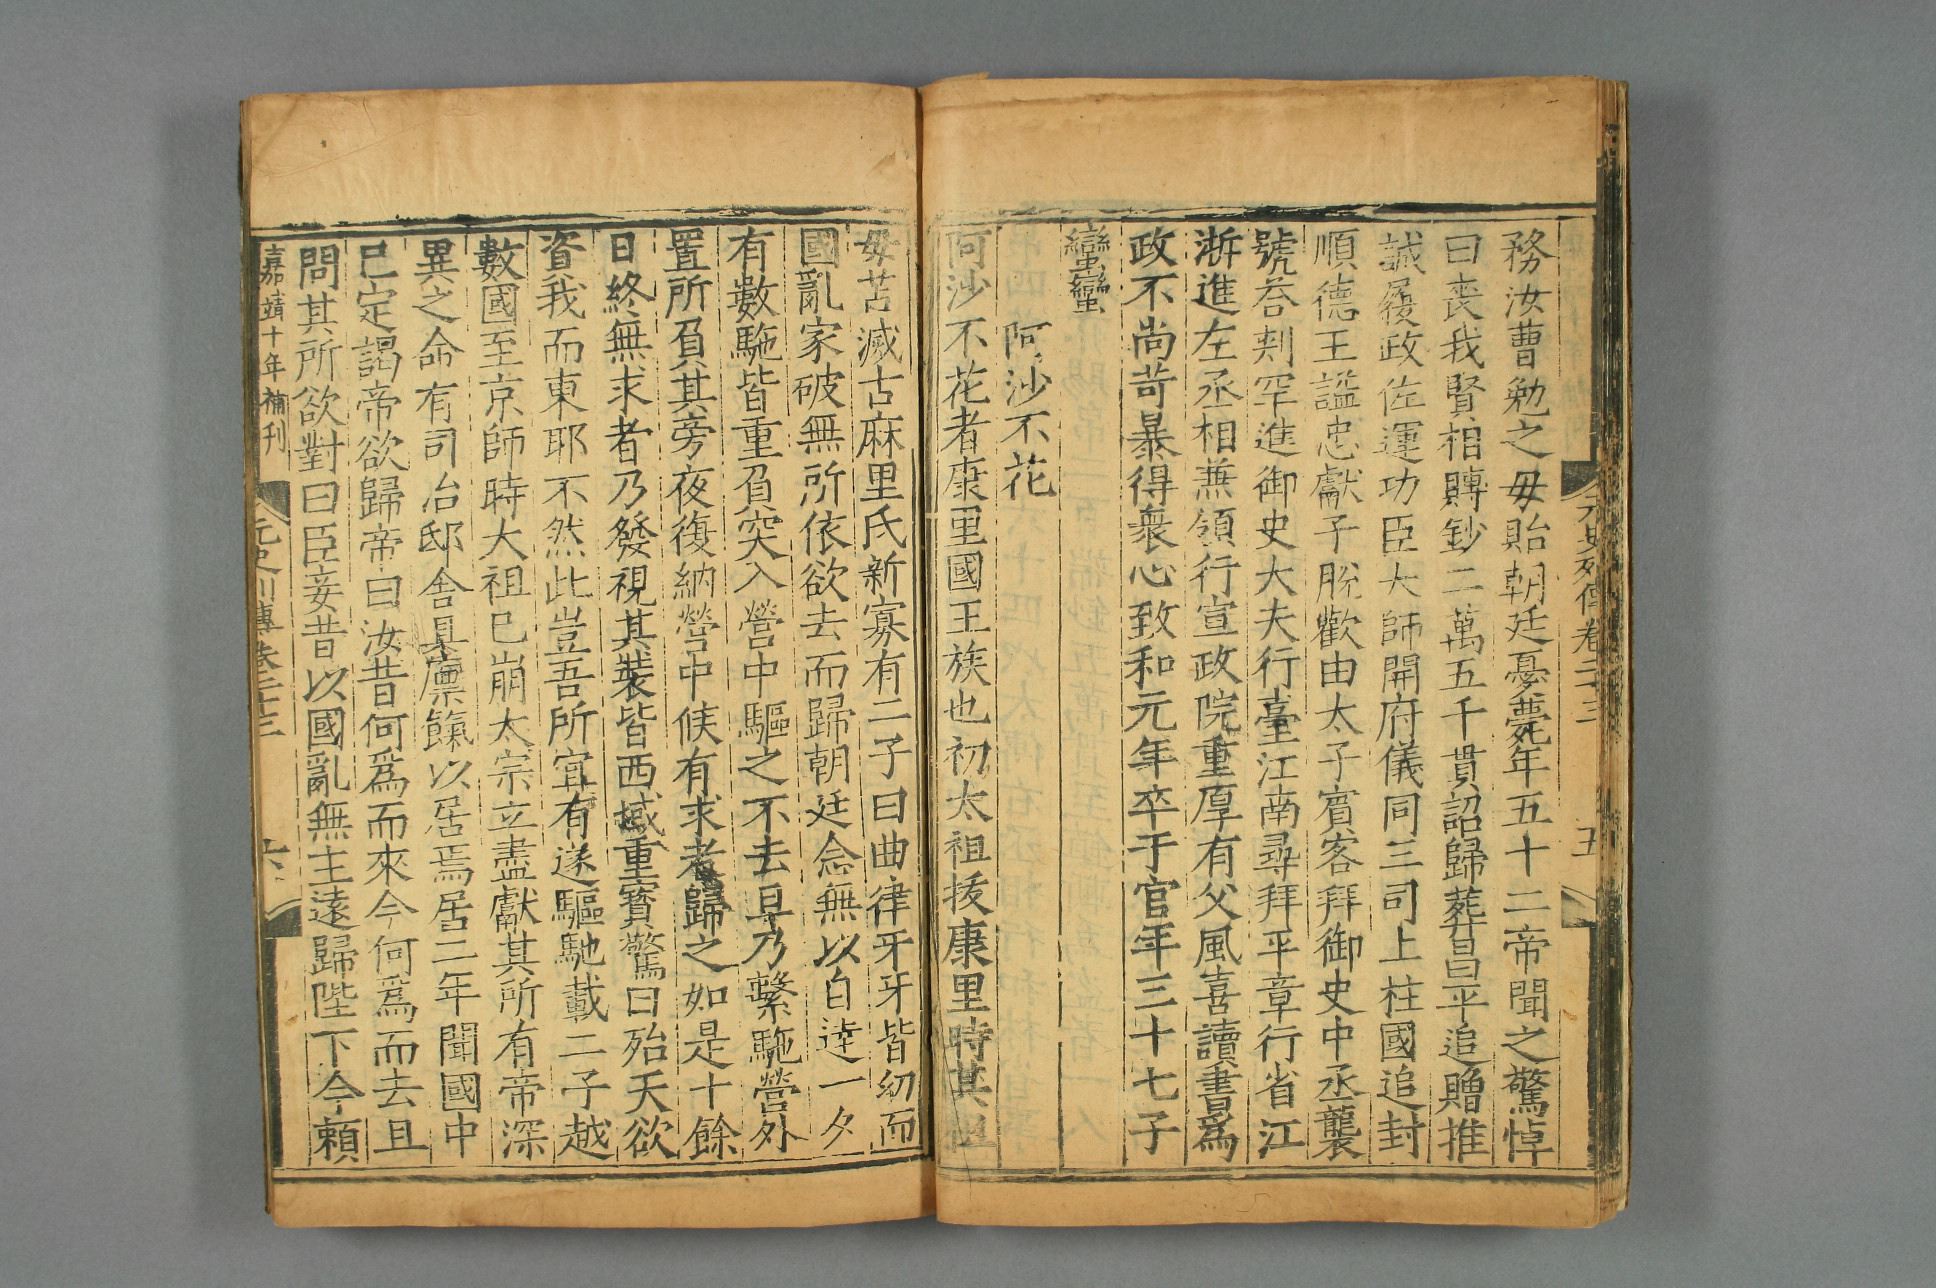 元史列傳卷二十三 五
務汝曹勉之毋貽朝廷憂薨年五十二帝聞之驚悼
曰喪我賢相賻鈔二萬五千貫詔歸葬昌平追贈推
誠履政佐運功臣太師開府儀同三司上柱國追封
順德王諡忠獻子脫歡由太子賓客拜御史中丞襲
號荅剌罕進御史大夫行臺江南尋拜平章行省江
浙進左丞相兼領行宣政院重厚有父風喜讀書爲
政不尚苛暴得衆心致和元年卒于官年三十七子
蠻蠻
阿沙不花
阿沙不花者康里國王族也初太祖拔康里時其祖
毋苫滅古麻里氏新寡有二子曰曲律牙牙皆幼而
國亂家破無所依欲去而歸朝廷念無以自達一夕
有數駞皆重負突入營中驅之不去旦乃繫駞營外
置所負其旁夜復納營中候有求者歸之如是十餘
日終無求者乃發視其裝皆西域重寶驚曰殆天欲
資我而東耶不然此豈吾所宜有遂驅馳載二子越
數國至京師時太祖已崩太宗立盡獻其所有帝深
異之命有司治邸舍具廩餼以居焉居二年聞國中
已定謁帝欲歸帝曰汝昔何爲而來今何爲而去且
問其所欲對曰臣妾昔以國亂無主遠歸陛下今賴
嘉靖十年補刊 元史列傳卷二十三 六